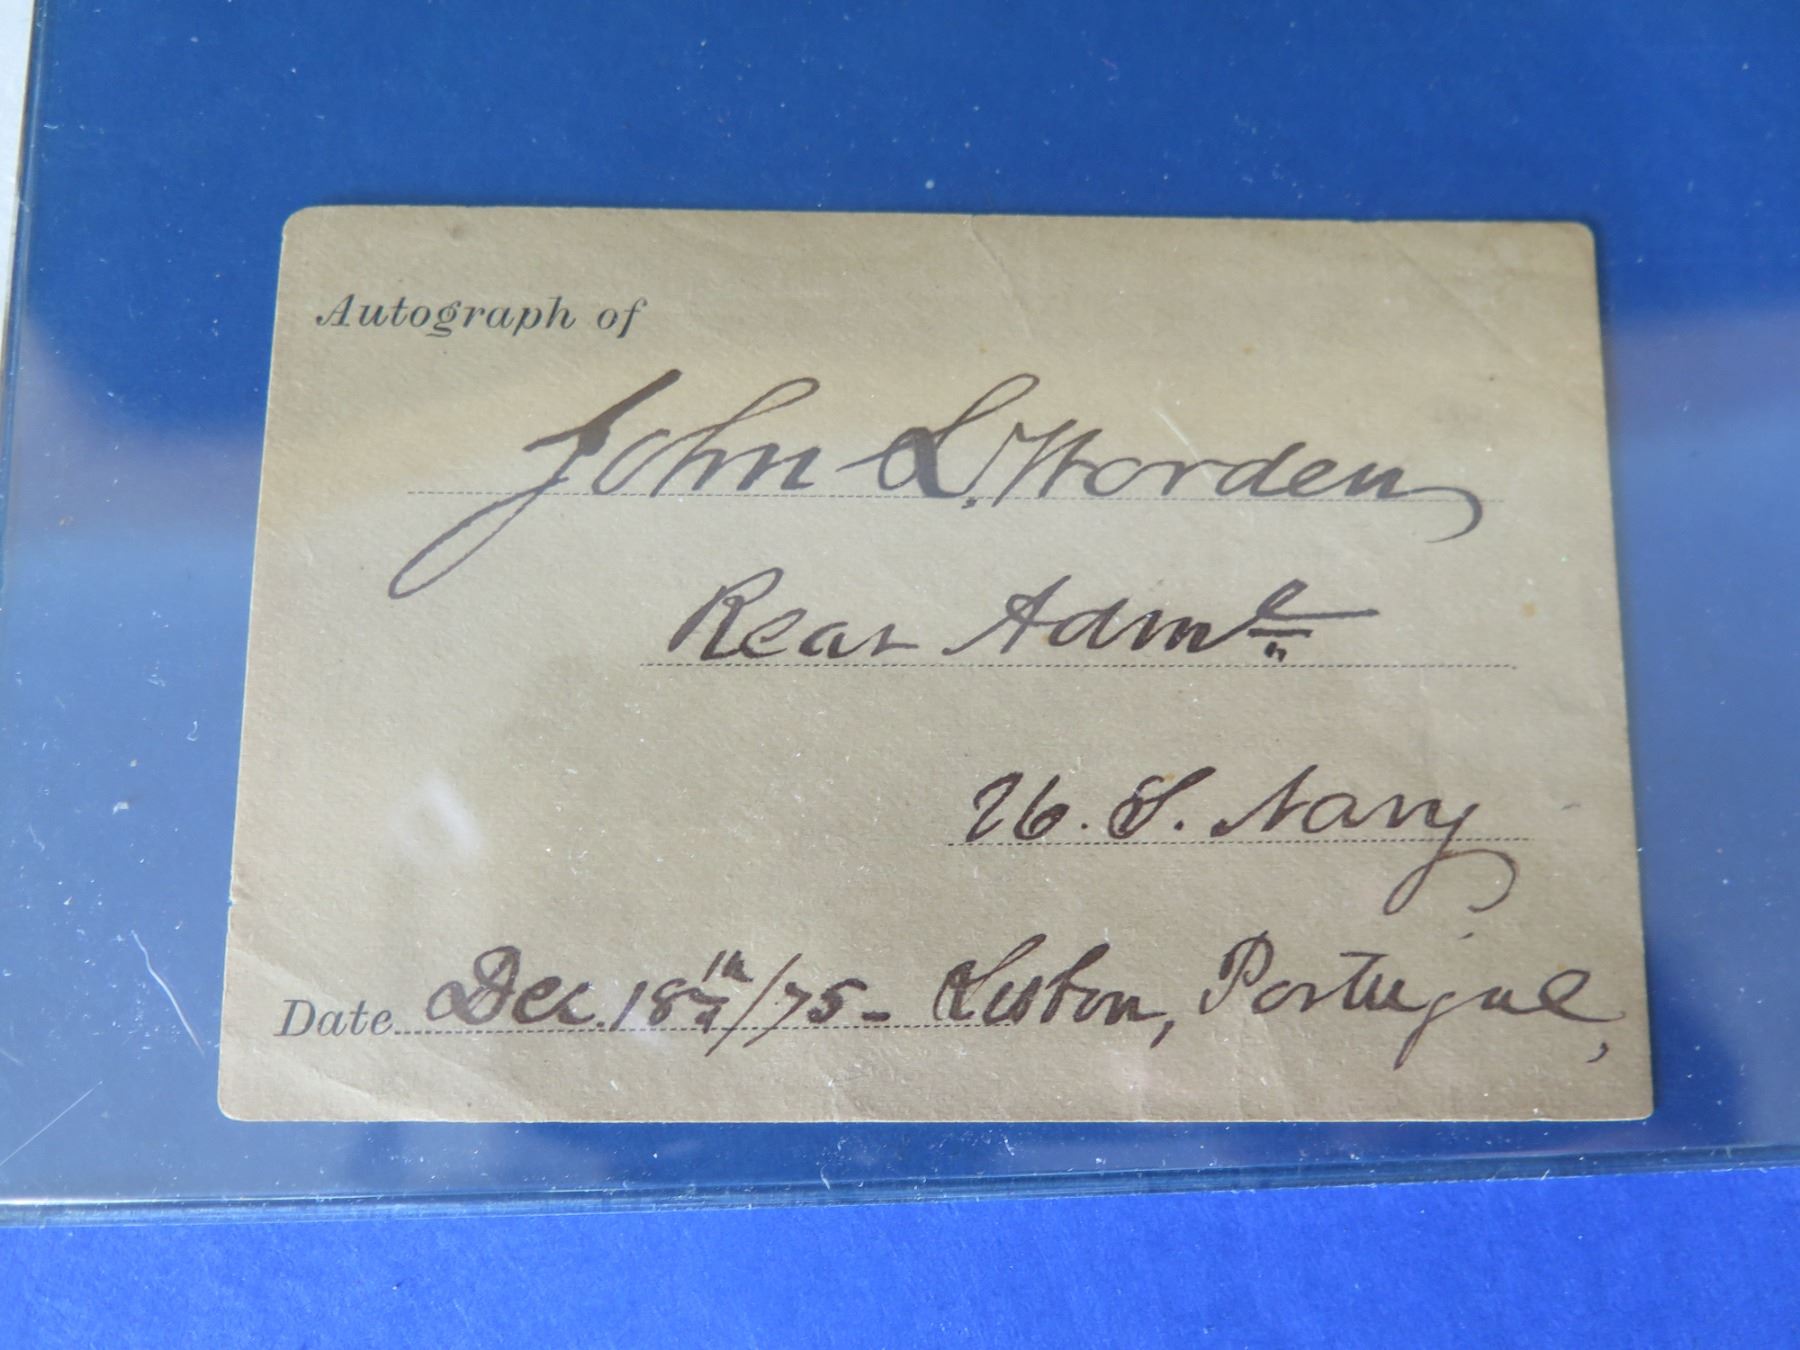 Autograph of
John L. Worden
Rear Adml
U. S. Navy
Date Dec. 18th/75 - Lisbon, Portugal,